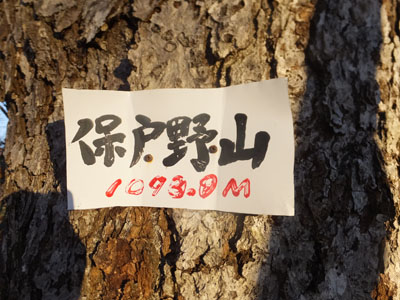 保戸野山
1093.8M